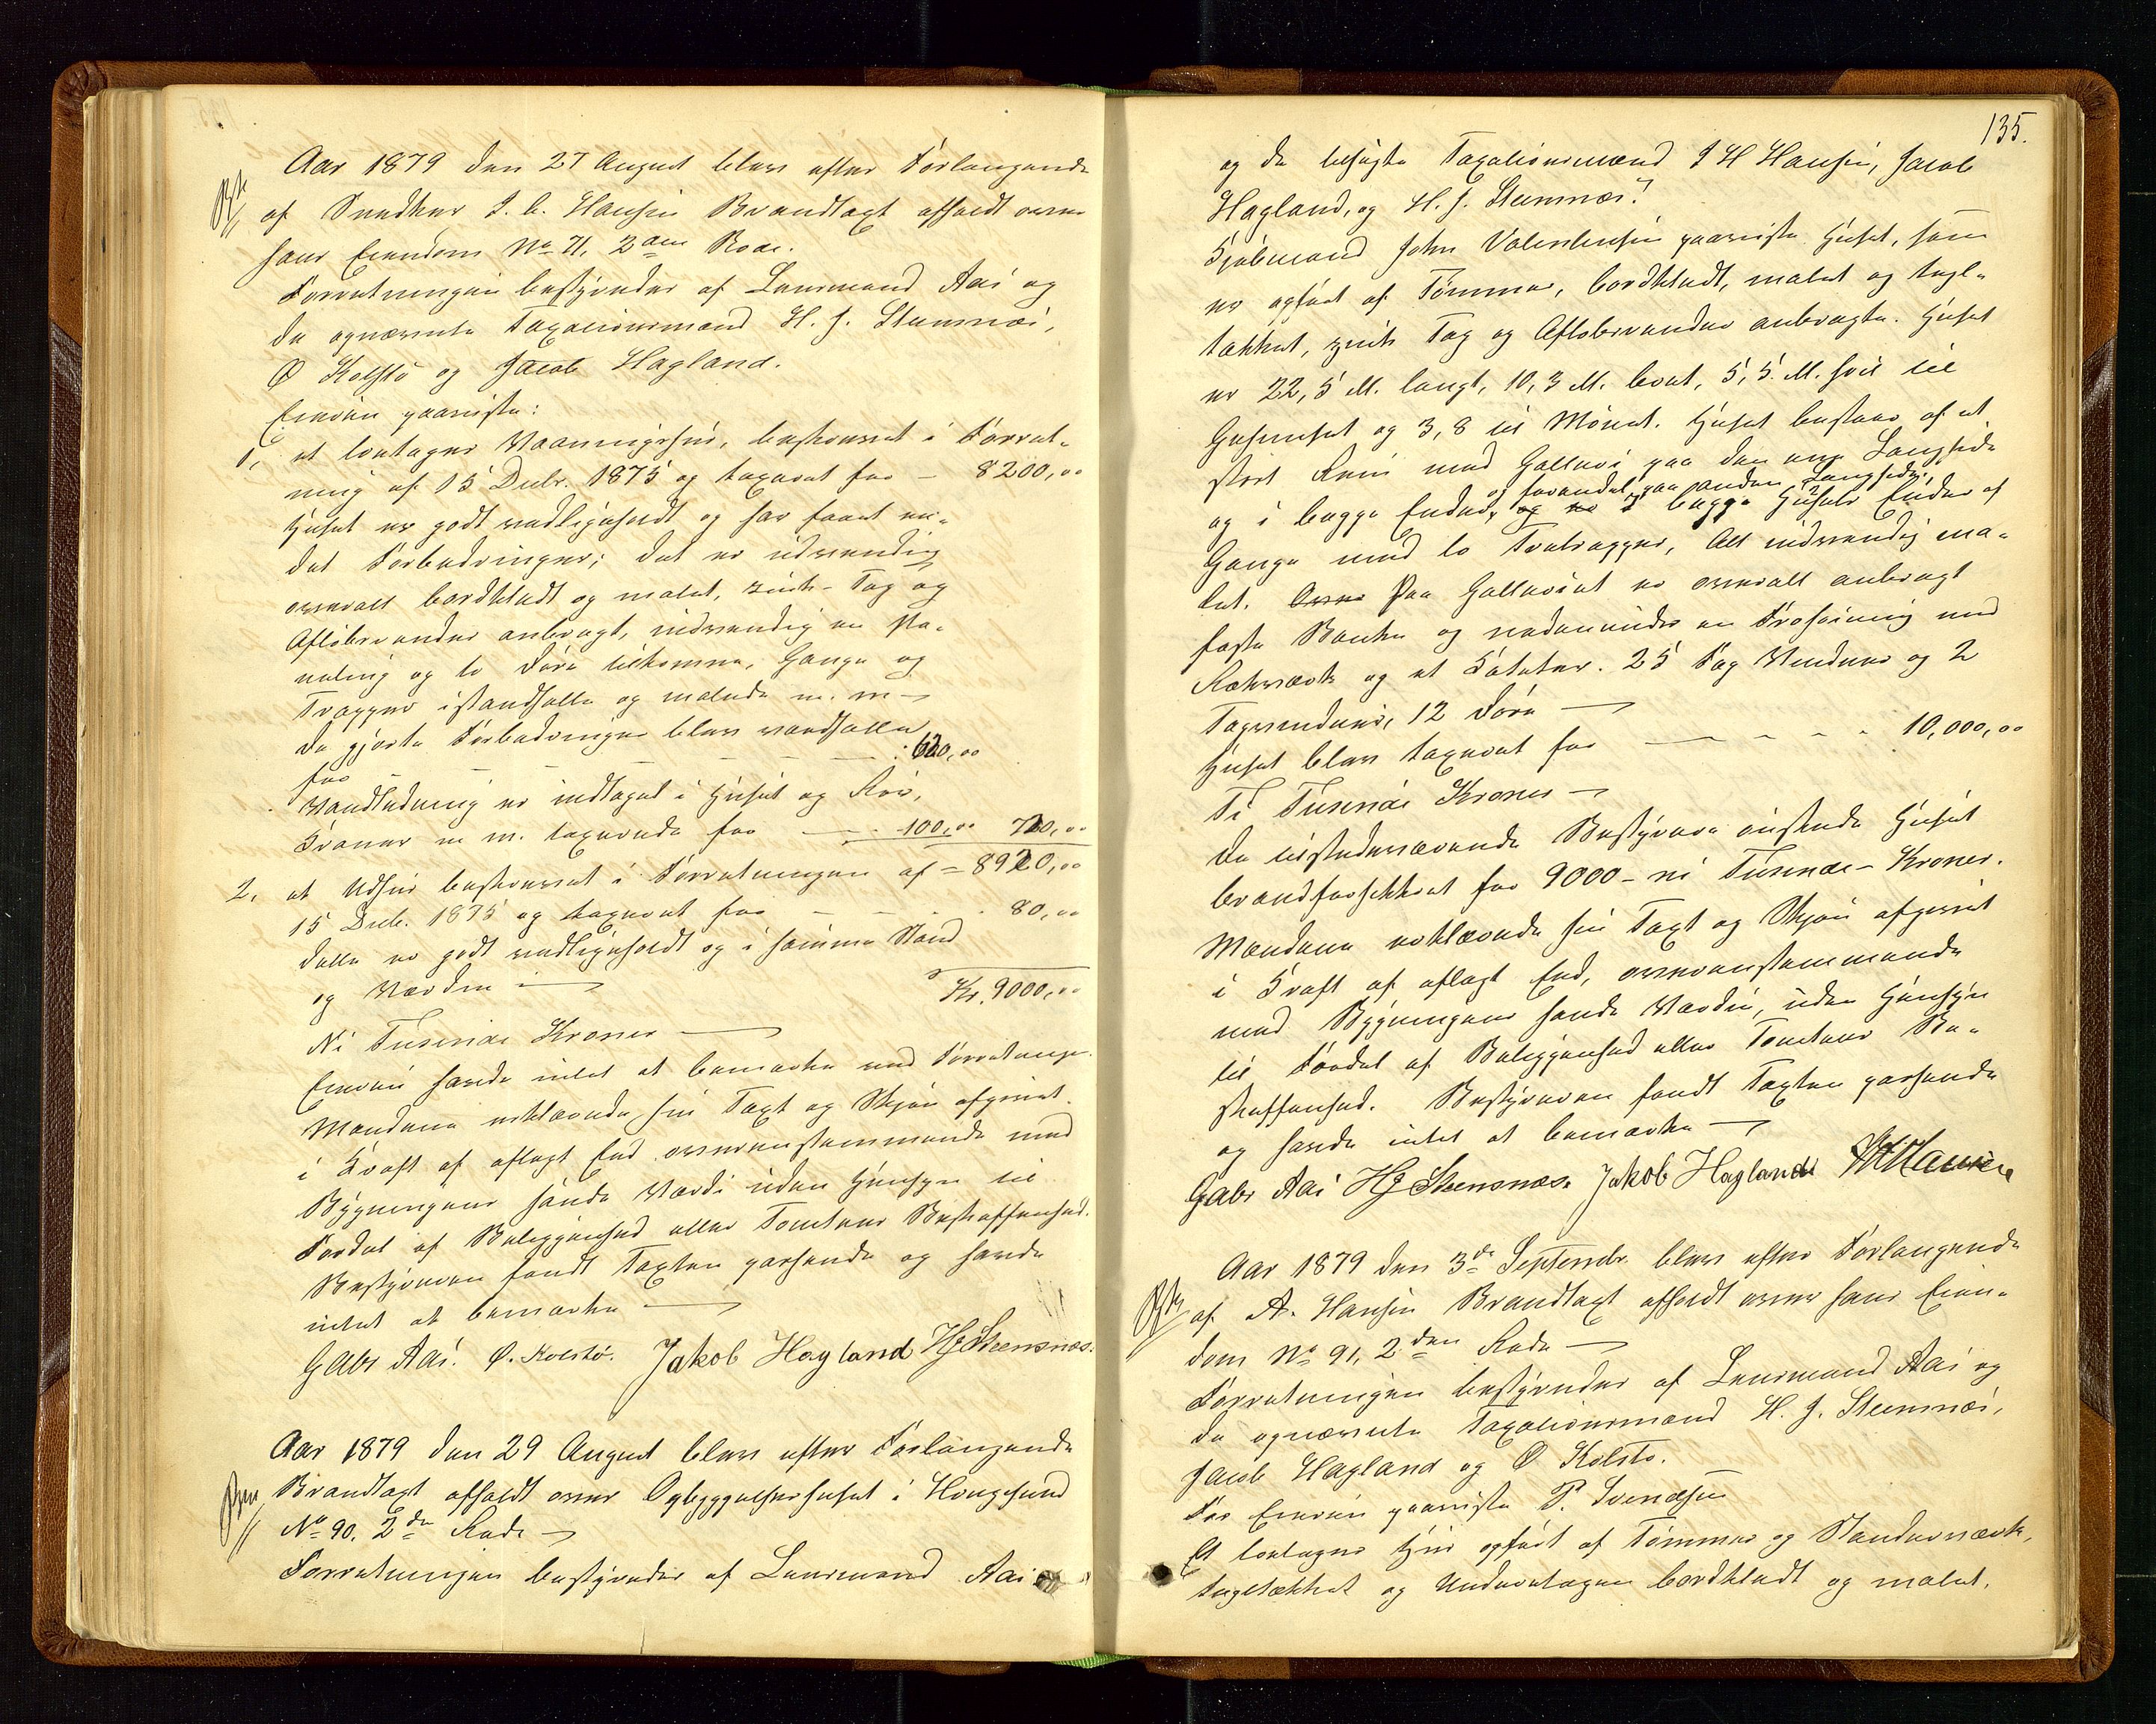 Aar 1879 den 27 August blev efter Forlangende
af Snedker J. C. Hansen Brandtaxt afholdt over
hans Eiendom No 71, 2den Rode.
Forretningen bestyredes af Lensmand Aai og
de opnævnte Taxationsmænd H. J. Steensnæs,
Ø Kolstø og Jacob Hagland.
Eieren paaviste:
1, et toetages Vaaningshus, beskrevet i Forret-
ning af 15 Decbr. 1875 og taxeret for – 8200,00
Huset er godt vedligeholdt og har faaet en-
del Forbedringer; det er udvendig
overalt bordklædt og malet, zink-Tag og
Afløbsrender anbragt, indvendig en Pa-
neling og to Døre tilkomne, Gange og
Trapper istandsatte og malede m. m –
De gjorte Forbedringer blev værdsatte
for – – – – – 620,00
Vandledning er indtaget i Huset og Rør,
Kraner m m. taxerede for – 100,00 720,00
2, et Udhus beskrevet i Forretningen af = 8920,00
15 Decb. 1875 og taxeret for – – 80,00
Dette er godt vedligeholdt og i samme Stand
og Værdi – Kr. 9000,00
Ni Tusinde Kroner –
Eieren havde intet at bemærke ved Forretningen.
Mændene erklærede sin Taxt og Skjøn afgivet
i Kraft af aflagt Eed, overensstemmende med
Bygningens sande Værdi uden Hensyn til
Fordel af Beliggenhed eller Tomtens Beskaffenhed.
Bestyreren fandt Taxten passende og havde
intet at bemærke –
Gabr Aai. Ø. Kolstø. Jakob Hagland HJSteensnæs.
Aar 1879 den 29 August blev efter Forlangende
Brandtaxt afholdt over Opbyggelseshuset i Haugesund
No 90, 2de Rode –
Forretningen bestyredes af Lensmand Aai
135.
og de besigtede Taxationsmænd J H Hansen, Jacob
Hagland, og H. J. Steensnæs.
Kjøbmand John Valentinsen paaviste Huset, som
er opført af Tømmer, bordklædt, malet og tegl-
tækket, zink Tag og Afløbsrender anbragte. Huset
er 22,5 M. langt, 10,3 M. bredt, 5,5 M. høit til
Gesimset og 3,8 til Mønet. Huset bestaar af et
stort Rum med Galleri paa den ene Langside
og forandet paa anden Langside,
og i begge Ender, og i begge Husets Ender af
Gange med to Trætrapper, Alt indvendig ma-
let. Over Paa Galleriet er overalt anbragt
faste Bænke og nedenunder en Forhøining med
Rækværk og et Kateter. 25 Fag Vinduer og 2
Tagvinduer, 12 Døre –
Huset blev taxeret for – – – 10,000,00
Ti Tusinde Kroner –
De tilstedeværende Bestyrere ønskede Huset
brandforsikkret for 9000 – ni Tusinde – Kroner.
Mændene erklærede sin Taxt og Skjøn afgivet
i Kraft af aflagt Eed, overensstemmende
med Bygningens sande Værdi, uden Hensyn
til Fordel af Beliggenhed eller Tomtens Be-
skaffenhed. Bestyreren fandt Taxten passende
og havde intet at bemærke –
Gabr Aai HJ Steensnæs. Jakob Hagland JHHansen
Aar 1879 den 3de Septembr. blev efter Forlangende
af A. Hansen Brandtaxt afholdt over hans Eien-
dom No 91, 2den Rode –
Forretningen bestyredes af Lensmand Aai og
de opnævnte Taxationsmænd H. J. Steensnæs,
Jacob Hagland og Ø Kolstø.
For Eieren paaviste P. Svendsen
Et toetages Hus opført af Tømmer og Stenderværk,
tegltækket og Underetagen bordklædt og malet.